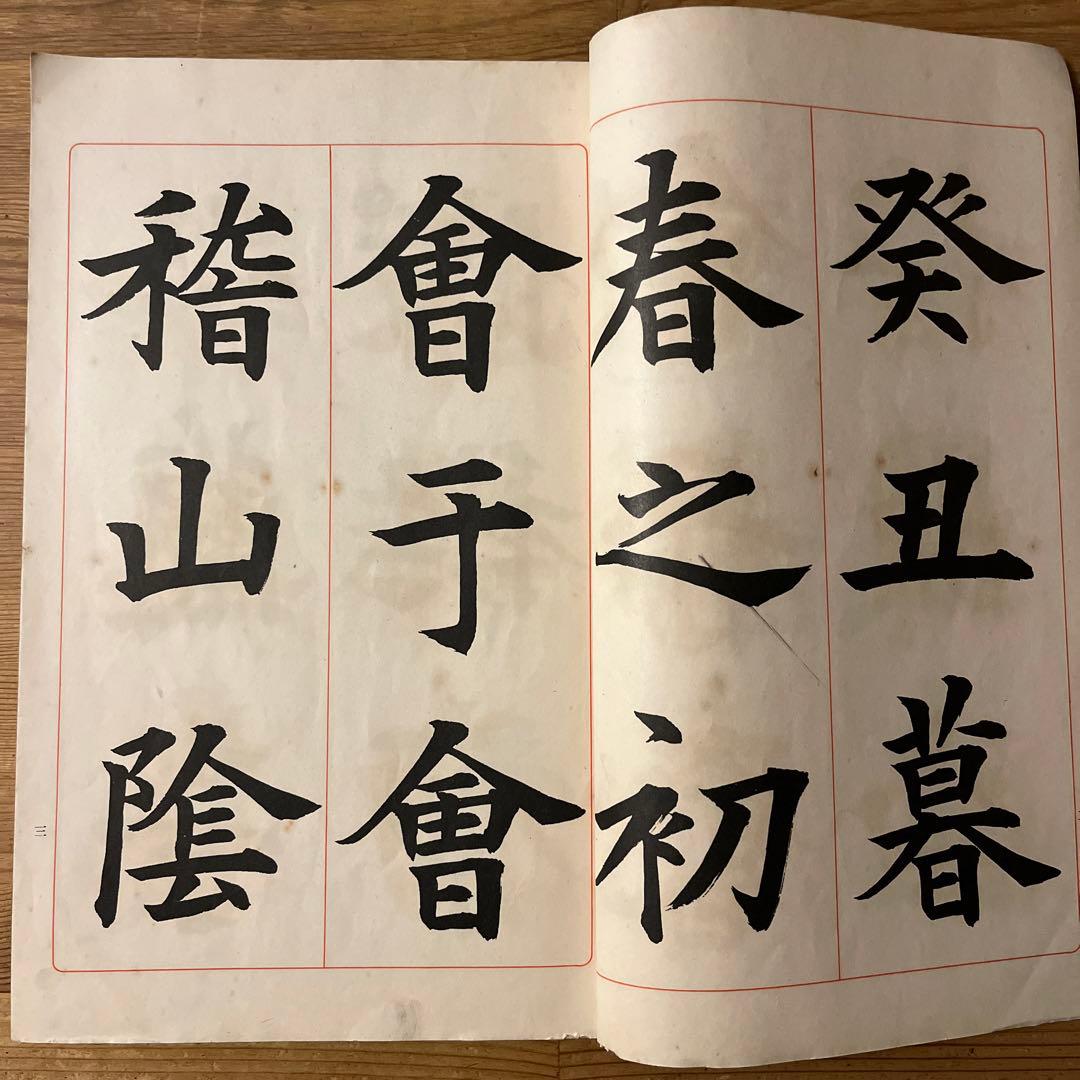 癸丑暮
春之初
會于會
稽山陰
三